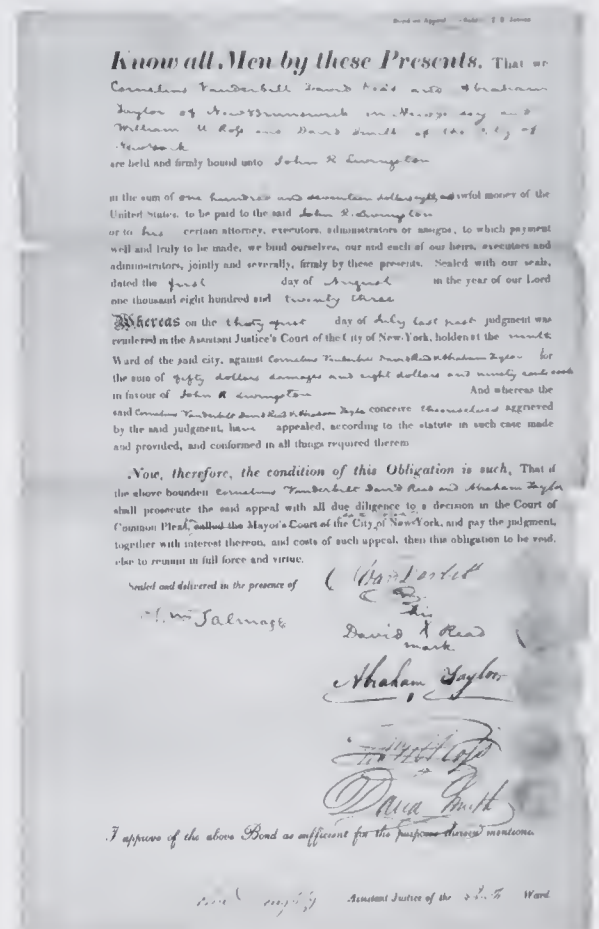 Bond on Appeal
Know all Men by these Presents, That we
Cornelius Vanderbilt David Read and Abraham
Taylor of New Brunswick in New Jersey and
William U Ross and David Smith of the City of
New York
are held and firmly bound unto John R Livingston
in the sum of one hundred and seventeen dollars lawful money of the
United States, to be paid to the said John R. Livingston
or to his certain attorney, executors, administrators or assigns, to which payment
well and truly to be made, we bind ourselves, our and each of our heirs, executors and
administrators, jointly and severally, firmly by these presents. Sealed with our seals,
dated the first day of August in the year of our Lord
one thousand eight hundred and twenty three
Whereas on the thirty first day of July last past judgment was
rendered in the Assistant Justice's Court of the City of New-York, holden at the
Ward of the said city, against Cornelius Vanderbilt David Read & Abraham Taylor for
the sum of fifty dollars damages and eight dollars and ninety cents costs
in favour of John R Livingston And whereas the
said Cornelius Vanderbilt David Read & Abraham Taylor conceive themselves aggrieved
by the said judgment, have appealed, according to the statute in such case made
and provided, and conformed in all things required therein
Now, therefore, the condition of this Obligation is such, That if
the above bounden Cornelius Vanderbilt David Read and Abraham Taylor
shall prosecute the said appeal with all due diligence to a decision in the Court of
Common Pleas, called the Mayor's Court of the City of New-York, and pay the judgment,
together with interest thereon, and costs of such appeal, then this obligation to be void,
else to remain in full force and virtue.
Sealed and delivered in the presence of
C VanDerbilt
Talmage
his
David X Read
mark
Abraham Taylor
David Smith
I approve of the above Bond as sufficient for the purposes therein mentioned
Assistant Justice of the Ward